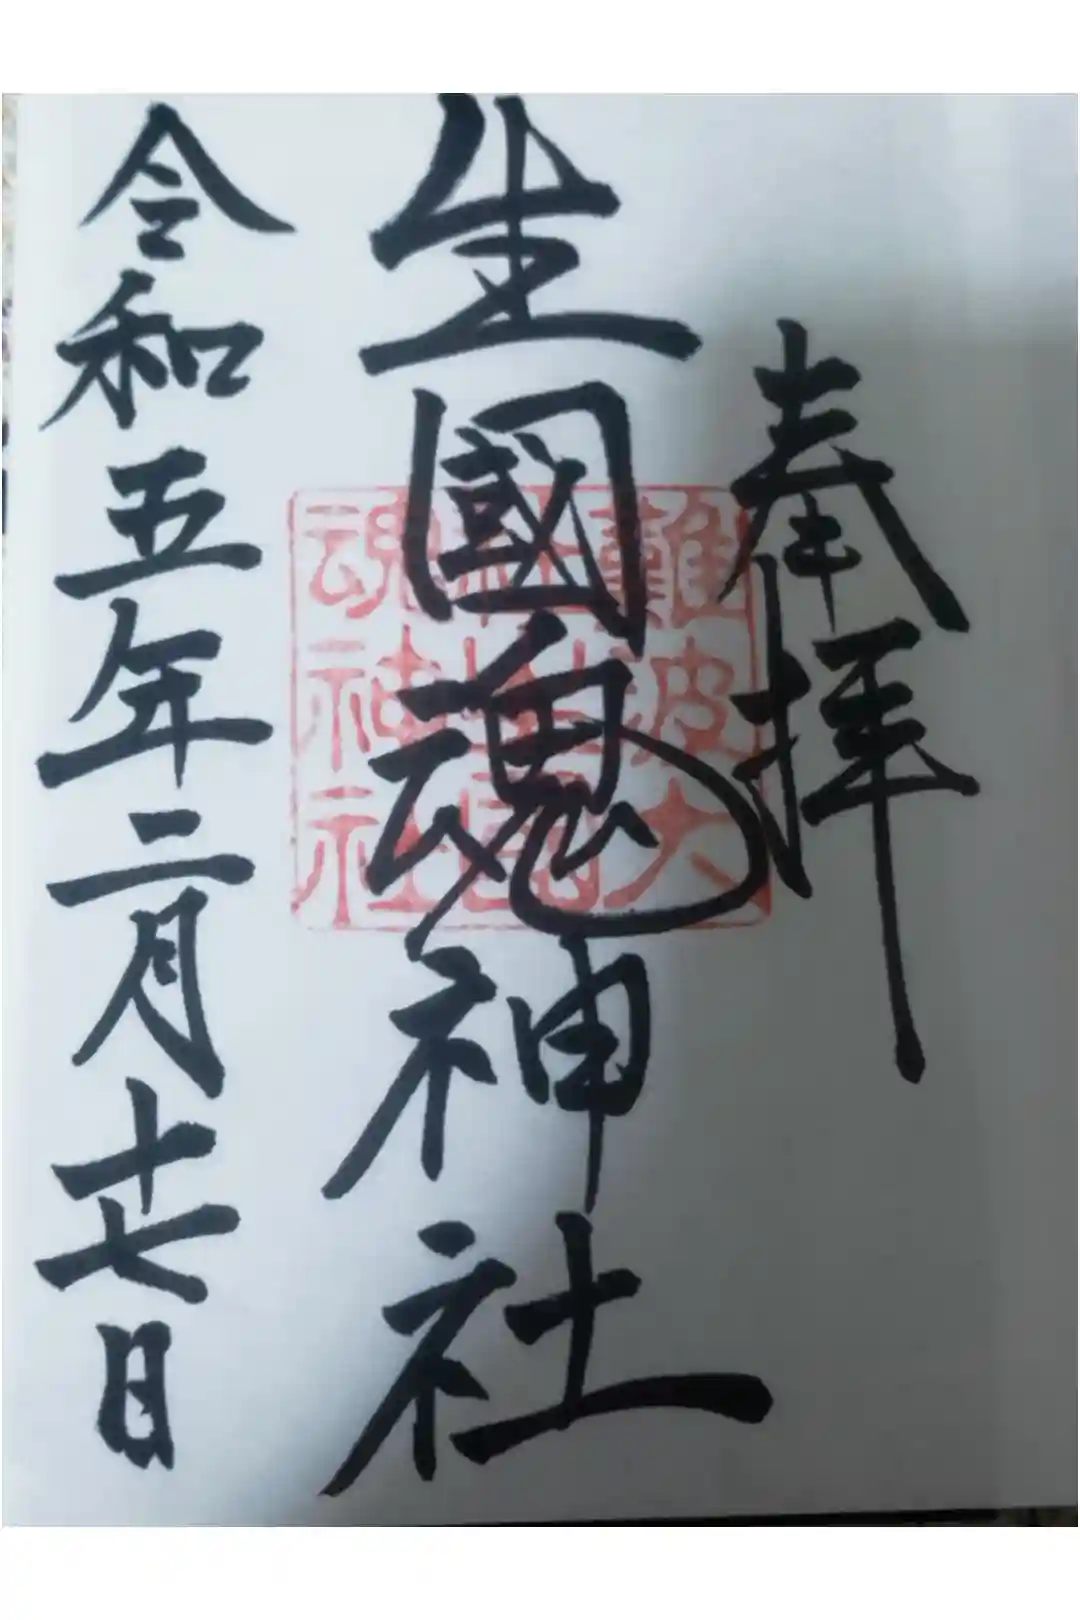 奉拝
生國魂神社
難波大
社生国
魂神社
令和五年二月十七日